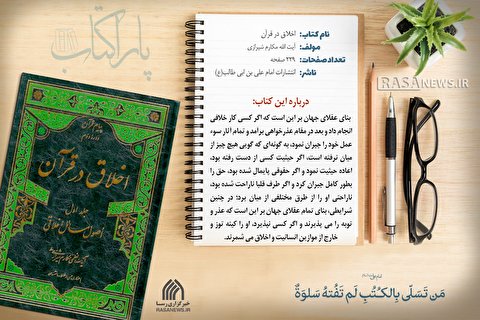 پاراکتاب
RASANEWS.IR
نام کتاب: اخلاق در قرآن
مولف: آیت الله مکارم شیرازی
تعداد صفحات: ۲۲۹ صفحه
ناشر: انتشارات امام علی بن ابی طالب(ع)
درباره این کتاب:
بنای عقلای جهان بر این است که اگر کسی کار خلافی
انجام داد و بعد در مقام عذرخواهی برآمد و تمام آثار سوء
عمل خود را جبران نمود، به گونه‌ای که گویی هیچ چیز از
میان نرفته است، اگر حیثیت کسی از دست رفته بود،
اعاده حیثیت نمود و اگر حقوقی پایمال شده بود، حق را
بطور کامل جبران کرد و اگر طرف قلبا ناراحت شده بود،
ناراحتی او را از طرق مختلفی از میان برد؛ در چنین
شرایطی، بنای تمام عقلای جهان بر این است که عذر و
توبه او را می پذیرند و اگر کسی نپذیرد، او را کینه توز و
خارج از موازین انسانیت و اخلاق می شمرند.
اخلاق در قرآن
جلد اول
اصول مسائل اخلاقی
خبرگزاری رسا
RASANEWS.IR
مَن تَسَلّی بِالکُتُبِ لَم تَفُتهُ سَلوَةٌ